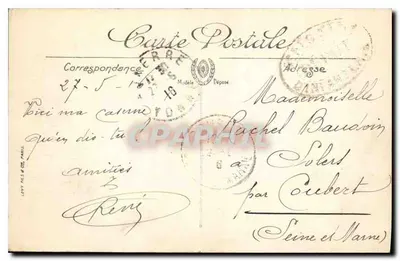 Carte Postale
Correspondance
Modèle Déposé
Adresse
27-5-1
Voici ma caserne
qu'en dis-tu
amitiés
René
Mademoiselle
Rachel Baudoin
à Solers
par Coubert
(Seine et Marne)
cartepostale